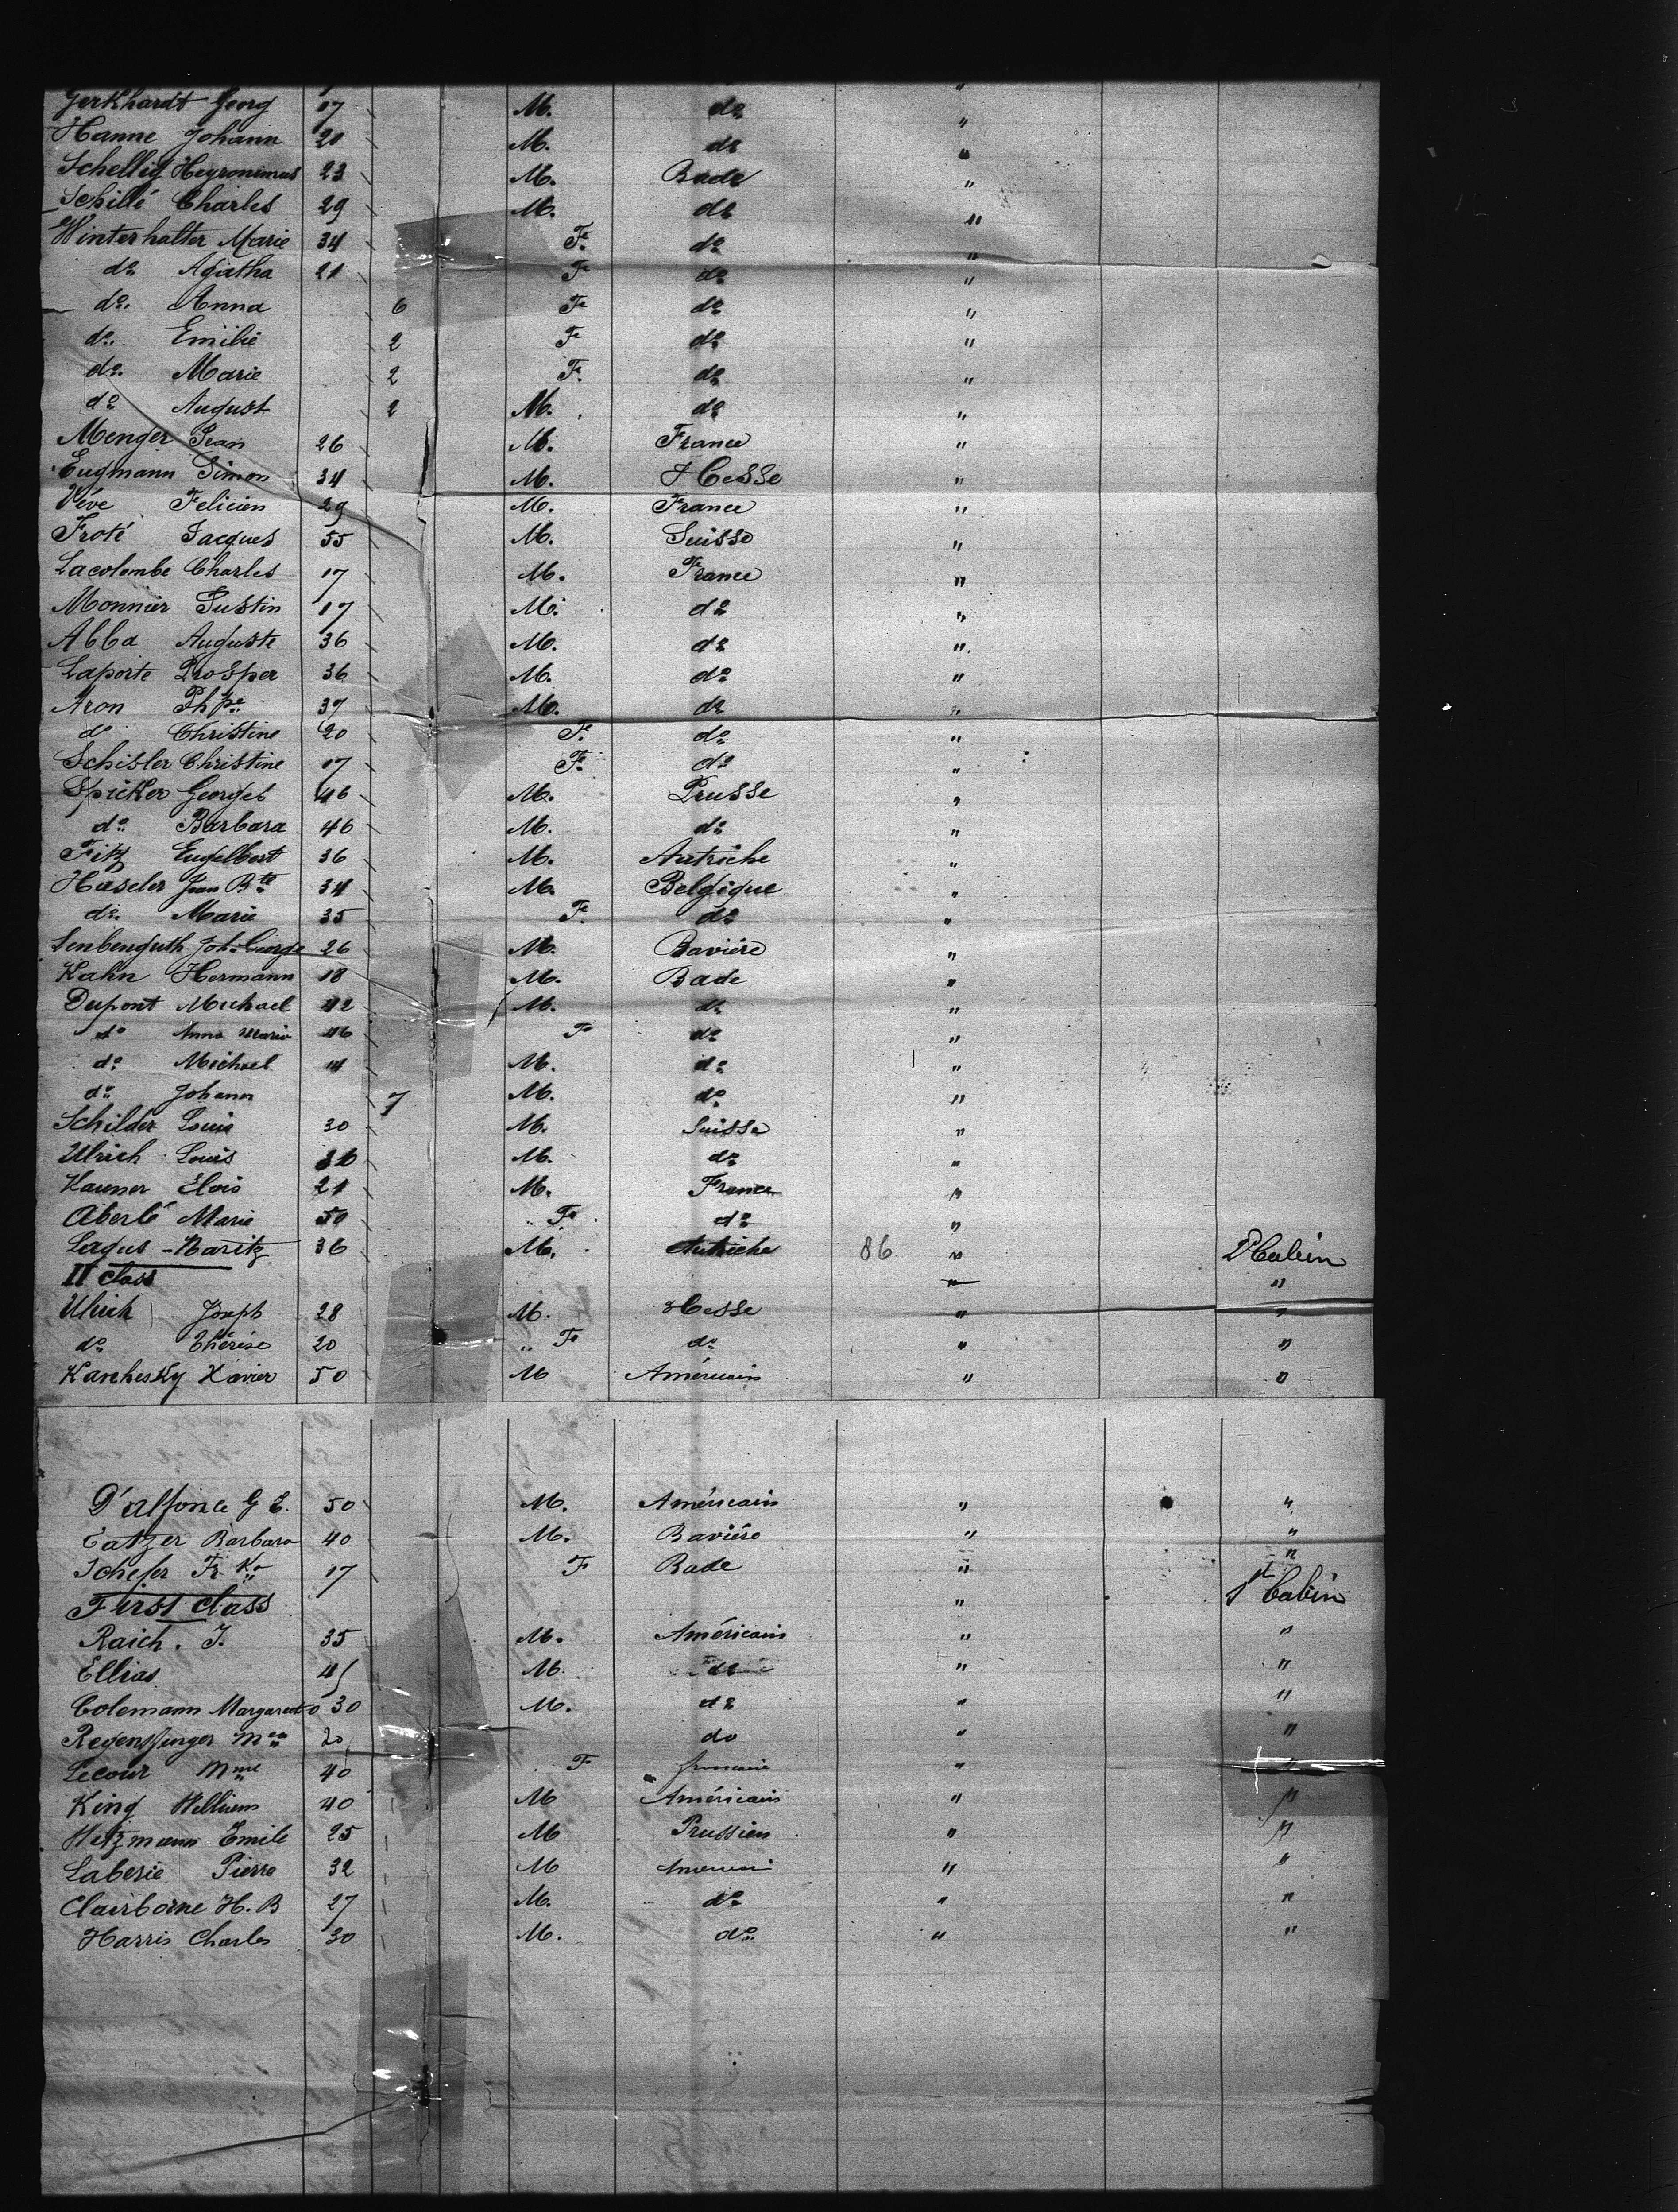 Gerkhardt Georg 17 M. do "
Hanne Johann 20 M. do "
Schellig Heyronimus 23 M. Bade "
Schillé Charles 29 M. do "
Winterhalter Marie 34 F. do "
do Agatha 21 F do "
do. Anna 6 F do "
do. Emilie 2 F do "
do. Marie 2 F. do "
do August 2 M. do "
Menger Jean 26 M. France "
Eugmann Simon 34 M. Hesse "
Vève Felicien 29 M. France "
Froté Jacques 55 M. Suisse "
Lacolombe Charles 17 M. France "
Monnier Justin 17 M. do "
Abba Auguste 36 M. do "
Laporte Prosper 36 M. do "
Aron Phpe 37 M. do "
do Christine 20 F. do "
Schisler Christine 17 F. do "
Spicker Georges 46 M. Prusse "
do. Barbara 46 M. do "
Fitz Engelbert 36 M. Autriche "
Hüseler Jean Bte 34 M. Belgique "
do. Marie 35 F. do "
Lenbenguth Joh. George 26 M. Bavière "
Kahn Hermann 18 M. Bade "
Dupont Michael 42 M. do "
do Anna Maria 46 F do "
do. Michael 14 M. do "
do. Johann 7 M. do "
Schilder Louis 30 M. Suisse "
Ulrich Louis M. do "
Kauner Elois 21 M. France "
Aberlé Marie 50 F. do "
Ladus - Naritz 36 M. Autriche 86 " 2d Cabin
II Class " "
Ulrich Joseph 28 M. Hesse " "
do Thérèse 20 F do " "
Karchesky Xavier 50 M Américain " "
D'alfonce G E. 50 M. Américain " "
Tatzer Barbara 40 M. Bavière " "
Schefer Fr Ka 17 F Bade " "
First Class " 1st Cabin
Raich. J. 35 M. Américain " "
Ellias 45 M. do " "
Colemann Margaret 30 M. do " "
Regenssinger 20 do " "
Lecour Mme 40 F française " "
King William 40 M Américain " "
Witzmann Emile 25 M Prussien " "
Laberie Pierre 32 M Americain " "
Clairborne H. B 27 M. do " "
Harris Charles 30 M. do " "